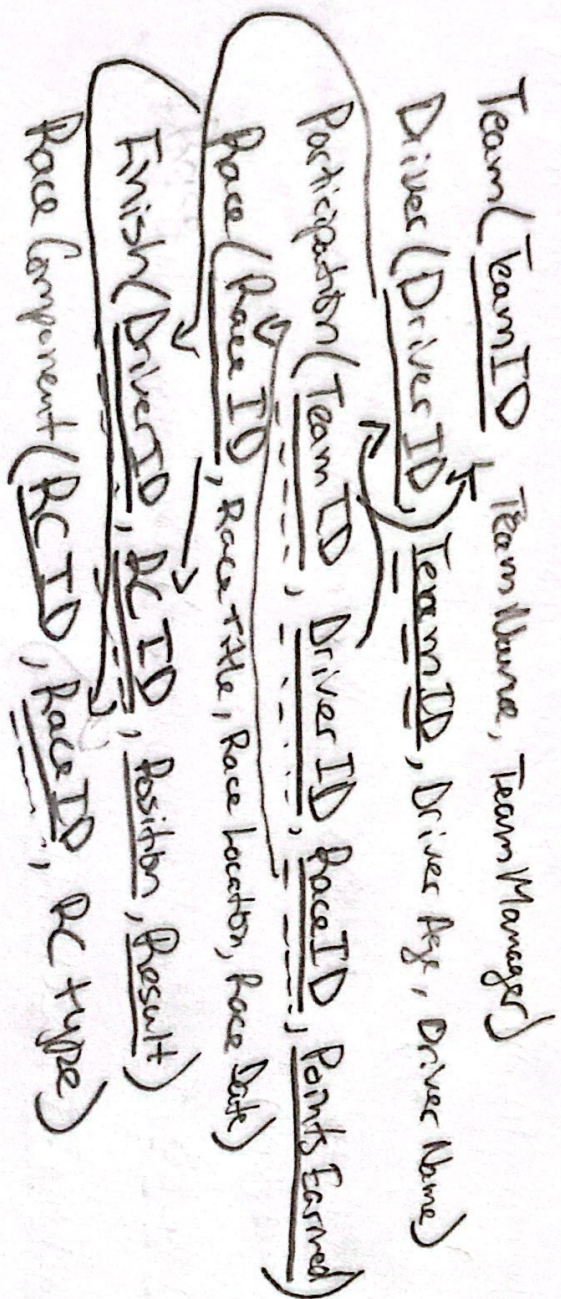 Team(TeamID, TeamName, TeamManager)
Driver(DriverID, TeamID, Driver Age, Driver Name)
Participation(TeamID, DriverID, RaceID, Points Earned)
Race(RaceID, Race Title, Race Location, Race Date)
Finish(DriverID, RCID, Position, Result)
Race Component(RCID, RaceID, RC type)